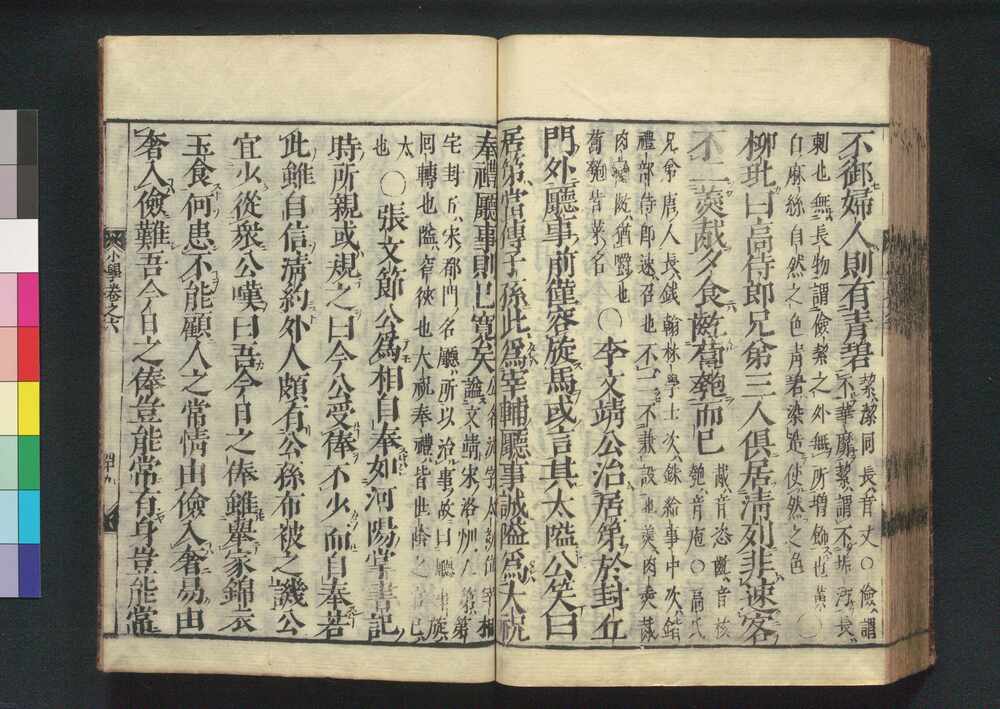 不御婦人則有青碧
絜潔同長音丈〇儉謂
不華靡絜謂不垢汚長
剩也無長物謂儉絜之外無所增飾也黃
白麻絲自然之色青碧染造使然之色 〇
柳玭曰高侍郎兄弟三人俱居清列非速客
不二羹胾夕食齕蔔匏而已
胾音恣齕音核
匏音庖〇高氏
兄弟唐人長釴翰林學士次銖給事中次鍇
禮部侍郎速召也不二不兼設也羹肉羹胾
肉臠齕猶嚼也
蔔匏皆菜名
〇李文靖公治居第於封丘
門外廳事前僅容旋馬或言其太隘公笑曰
居第當傳子孫此爲宰輔廳事誠隘爲太祝
奉禮廳事則已寬矣
公名沆字太初宋相
諡文靖宋洛州人第
宅封丘宋都門名廳所以治事故曰廳事
囘轉也隘窄狹也太祝奉禮皆世廕之族
太
也
〇張文節公爲相自奉如河陽掌書記
時所親或規之曰今公受俸不少而自奉若
此雖自信清約外人頗有公孫布被之譏公
宜少從衆公嘆曰吾今日之俸雖擧家錦衣
玉食何患不能顧人之常情由儉入奢易由
奢入儉難吾今日之俸豈能常有身豈能常
小學卷之六